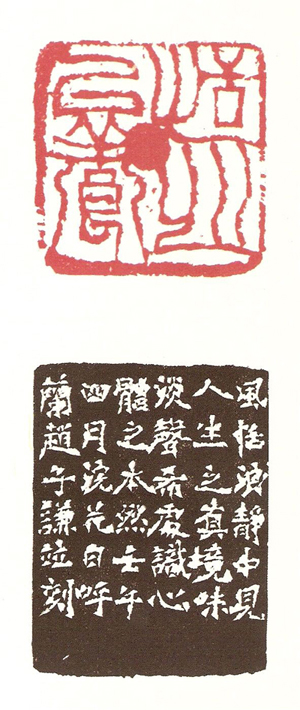 風恬浪靜中見
人生之真境味
淡聲希處識心
體之本然壬午
四月浣花日呼
蘭趙子謙竝刻